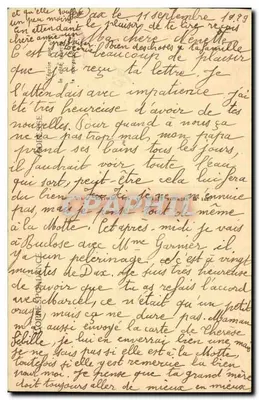 et qu'elle souffre
un peu moins
En attendant
le plaisir de te lire reçois
chère
Dax le 11 Septembre 1929
bien des choses à ta famille
Ma chère
C'est avec beaucoup de plaisir
que j'ai reçu ta lettre. Je
l'attendais avec impatience j'ai
été très heureuse d'avoir de tes
nouvelles. Pour quand à nous ça
ne va pas trop mal, mon papa
prend ses bains tous les jours,
il faudrait voir toute l'eau
qui sort, peut-être cela lui fera
du bien. Je ne m'ennuie
pas, même
à la Motte. Cet après-midi je vais
à Buglose avec Mme Garnier il
y a un pelerinage, c'est à vingt
minutes de Dax. Je suis très heureuse
de savoir que tu as refais l'accord
avec Marcel, ce n'était qu'un petit
orage mais ça ne dure pas. Maman
m'a aussi envoyé la carte de Therese
je lui en enverrai bien une mais
je ne sais pas si elle est à la Motte,
toutefois si elle y est remercie la bien
pour moi. Je pense que ta grand mère
doit toujours aller de mieux en mieux
CARTE POSTALE
CPAPHIL